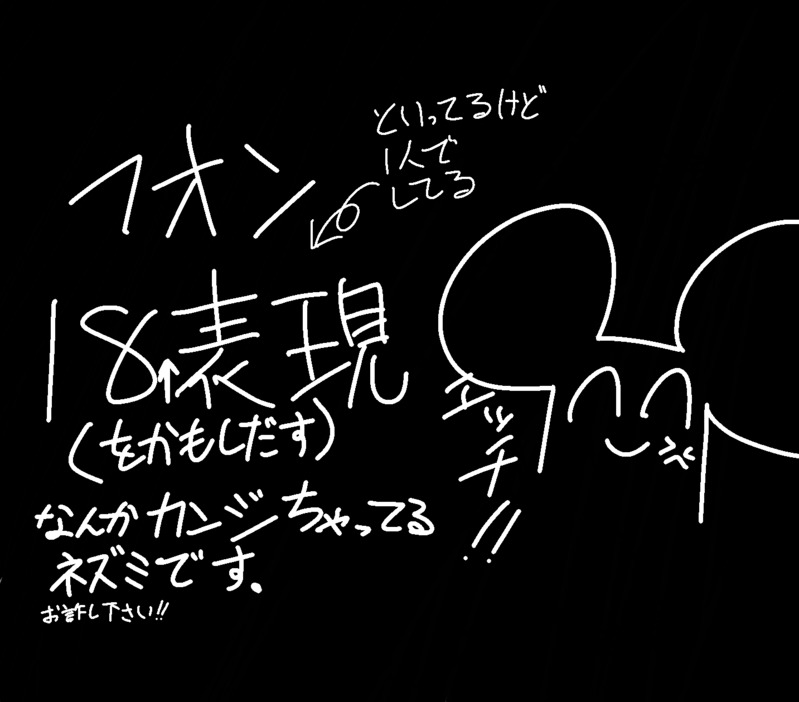 イオン
といってるけど
1人で
してる
18↑表現
(をかもしだす)
なんかカンジちゃってる
ネズミです。
お許し下さい!!
エッチ!!